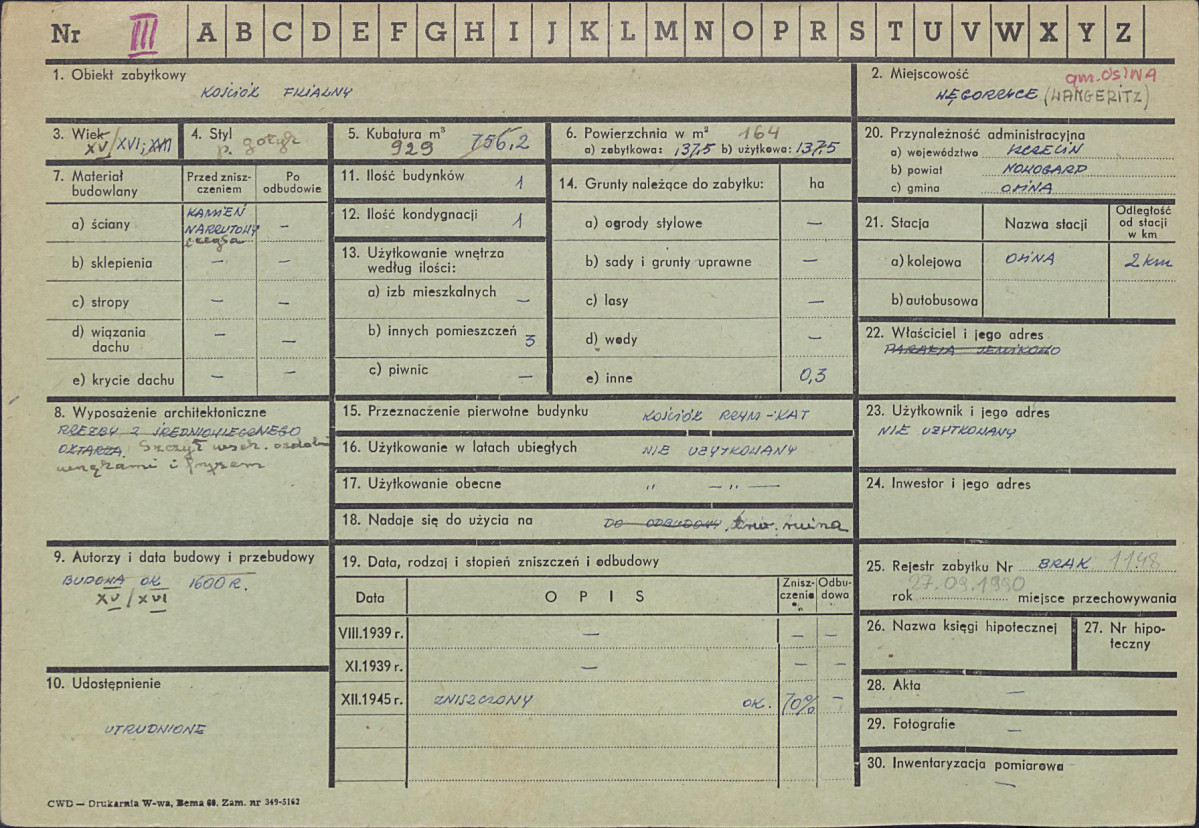 Nr III A B C D E F G H I J K L M N O P R S T U V W X Y Z
1. Obiekt zabytkowy
KOŚCIÓŁ FILIALNY
2. Miejscowość
gm. OSINA
WĘGORZYCE (WANGERITZ)
3. Wiek
XV/XVI; XVII
4. Styl
p. gotyk
5. Kubatura m³
929 756,2
6. Powierzchnia w m² 164
a) zabytkowa: 137,5 b) użytkowa: 137,5
7. Materiał budowlany
Przed zniszczeniem
Po odbudowie
a) ściany KAMIEŃ NARZUTOWY i cegła —
b) sklepienia — —
c) stropy — —
d) wiązania dachu — —
e) krycie dachu — —
8. Wyposażenie architektoniczne
RZEŹBY Z ŚREDNIOWIECZNEGO
OŁTARZA. Szczyt wsch. ozdob.
wnękami i fryzem
9. Autorzy i data budowy i przebudowy
BUDOWA OK 1600 R.
XV/XVI
10. Udostępnienie
UTRUDNIONE
11. Ilość budynków 1
12. Ilość kondygnacji 1
13. Użytkowanie wnętrza
według ilości:
a) izb mieszkalnych —
b) innych pomieszczeń 3
c) piwnic —
14. Grunty należące do zabytku: ha
a) ogrody stylowe —
b) sady i grunty uprawne —
c) lasy —
d) wody —
e) inne 0,3
15. Przeznaczenie pierwotne budynku KOŚCIÓŁ RZYM-KAT
16. Użytkowanie w latach ubiegłych NIE UŻYTKOWANY
17. Użytkowanie obecne " — " —
18. Nadaje się do użycia na DO ODBUDOWY, trw. ruina
19. Data, rodzaj i stopień zniszczeń i odbudowy
Data O P I S Zniszczenie % Odbudowa
VIII.1939 r. — — —
XI.1939 r. — — —
XII.1945 r. ZNISZCZONY OK. 70% —
20. Przynależność administracyjna
a) województwo SZCZECIN
b) powiat NOWOGARD
c) gmina OSINA
21. Stacja Nazwa stacji Odległość od stacji w km
a) kolejowa OSINA 2 km
b) autobusowa
22. Właściciel i jego adres
PARAFIA
23. Użytkownik i jego adres
NIE UŻYTKOWANY
24. Inwestor i jego adres
25. Rejestr zabytku Nr BRAK 1148
27.09.1990
rok miejsce przechowywania
26. Nazwa księgi hipotecznej
27. Nr hipoteczny
28. Akta —
29. Fotografie —
30. Inwentaryzacja pomiarowa
—
CWD — Drukarnia W-wa, Bema 60. Zam. nr 349-5162